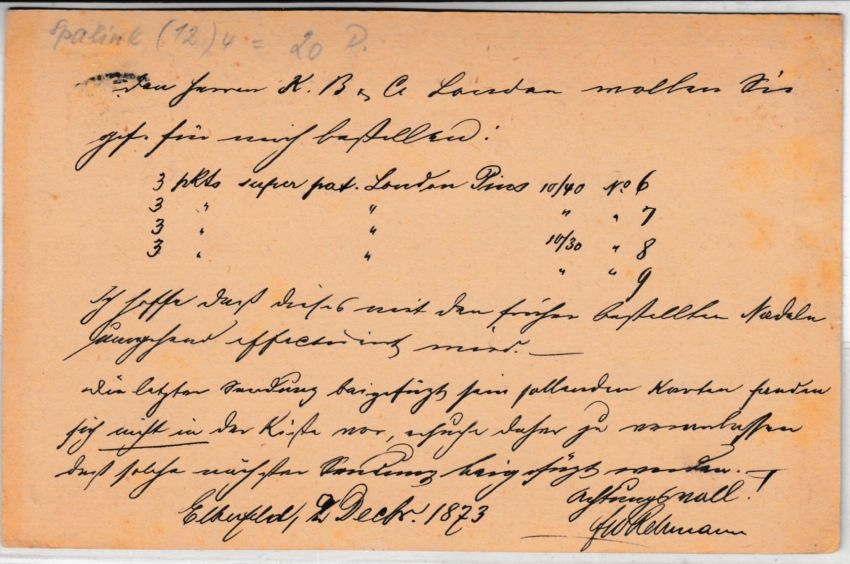 Spalink (12) 4 = 20 D.
Den Herren K. B & Co London wollen Sie
gef. für mich bestellen:
3 pkts super pat. London Pins 10/40 No 6
3 " " " " 7
3 " " 10/30 " 8
3 " " " " 9
Ich hoffe daß dieses mit den früher bestellten Nadeln
umgehend effectuirt wird. —
Die letzter Sendung beigefügt sein sollenden Karten fanden
sich nicht in der Kiste vor, ersuche daher zu veranlassen
daß solche nächster Sendung beigefügt werden. —
Achtungsvoll!
Elberfeld, 2 Decbr. 1873